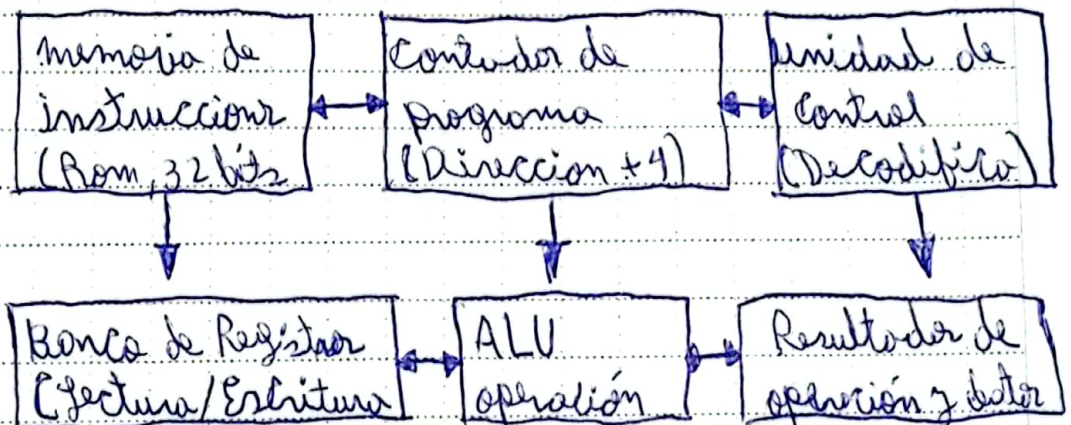 memoria de
instrucciones
(Rom, 32 bits
Contador de
programa
(Direccion +4)
unidad de
Control
(Decodifica)
Banco de Registros
(Lectura/Escritura
ALU
operación
Resultados de
operación y datos